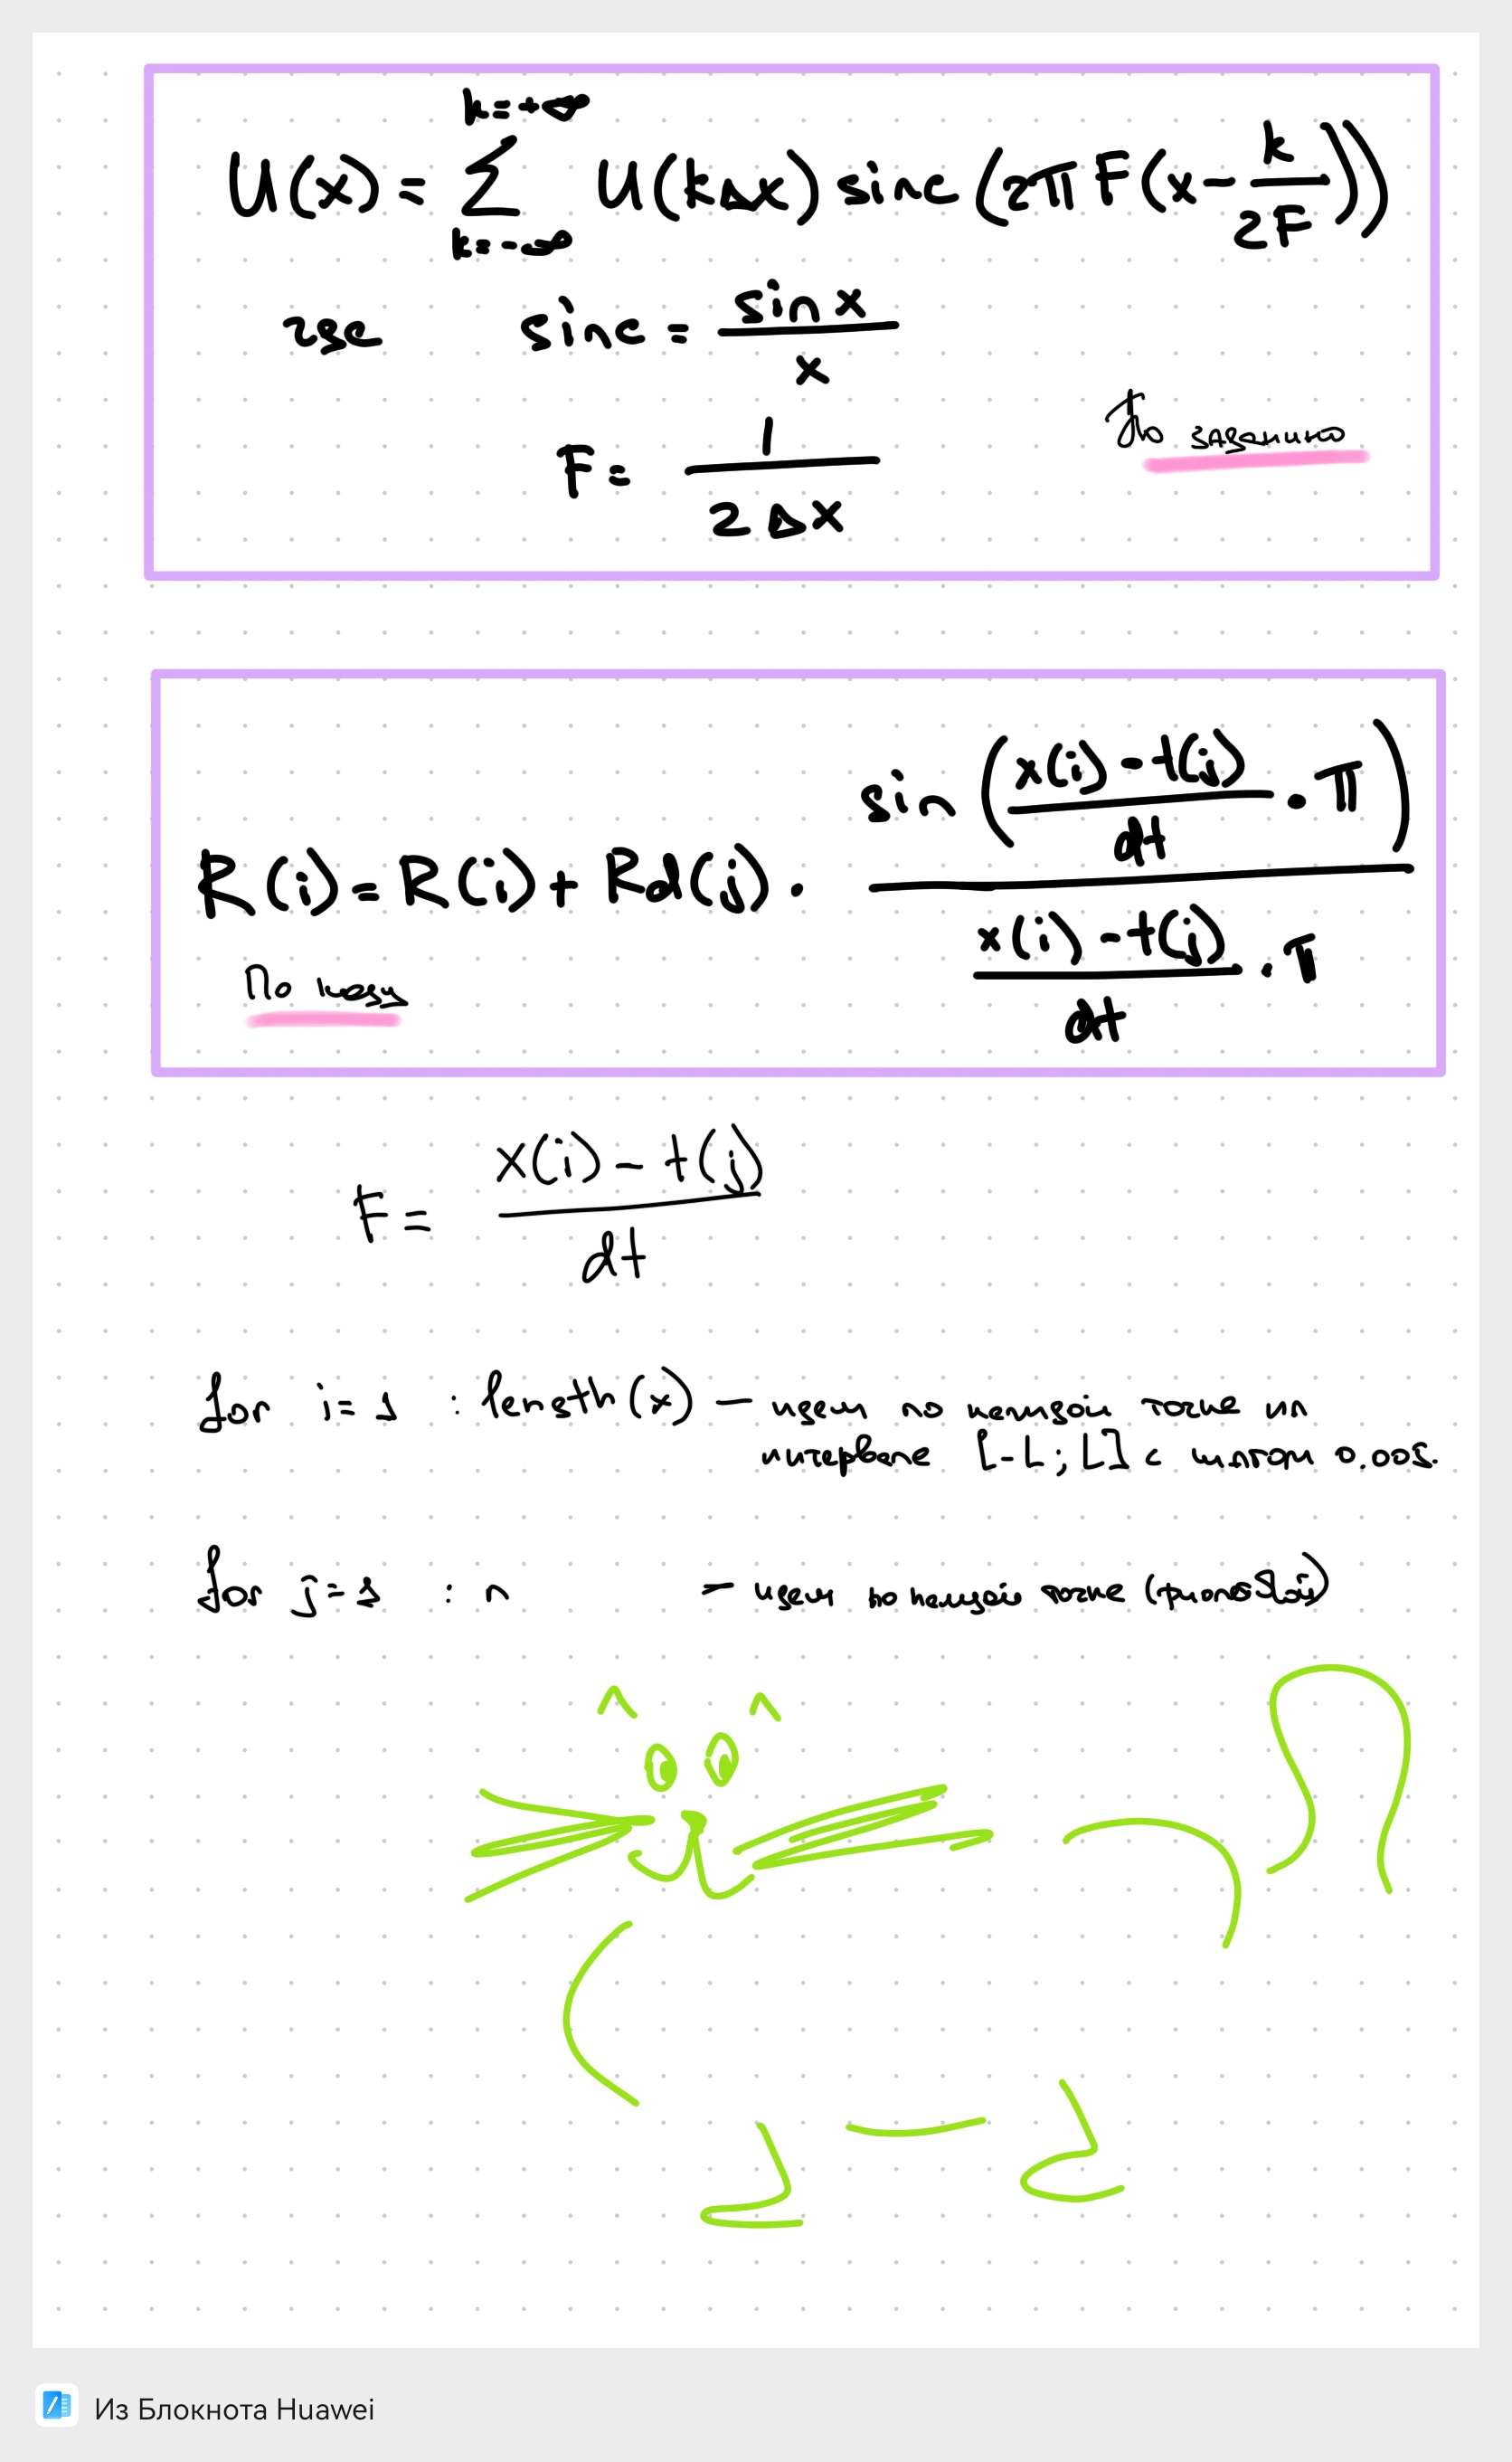 U(x) = \sum_{k=-∞}^{k=+∞} U(kΔx) sinc(2πF(x - \frac{k}{2F}))
где sinc = \frac{sin x}{x}
F = \frac{1}{2Δx}
По заданию
R(i) = R(i) + Rd(j) · \frac{sin(\frac{x(i) - t(j)}{dt} · π)}{\frac{x(i) - t(j)}{dt} · π}
По коду
F = \frac{x(i) - t(j)}{dt}
for i=1 : length(x) — идем по каждой точке из
интервале [-L; L] с шагом 0.005.
for j=1 : n — идем по каждой точке
Из Блокнота Huawei